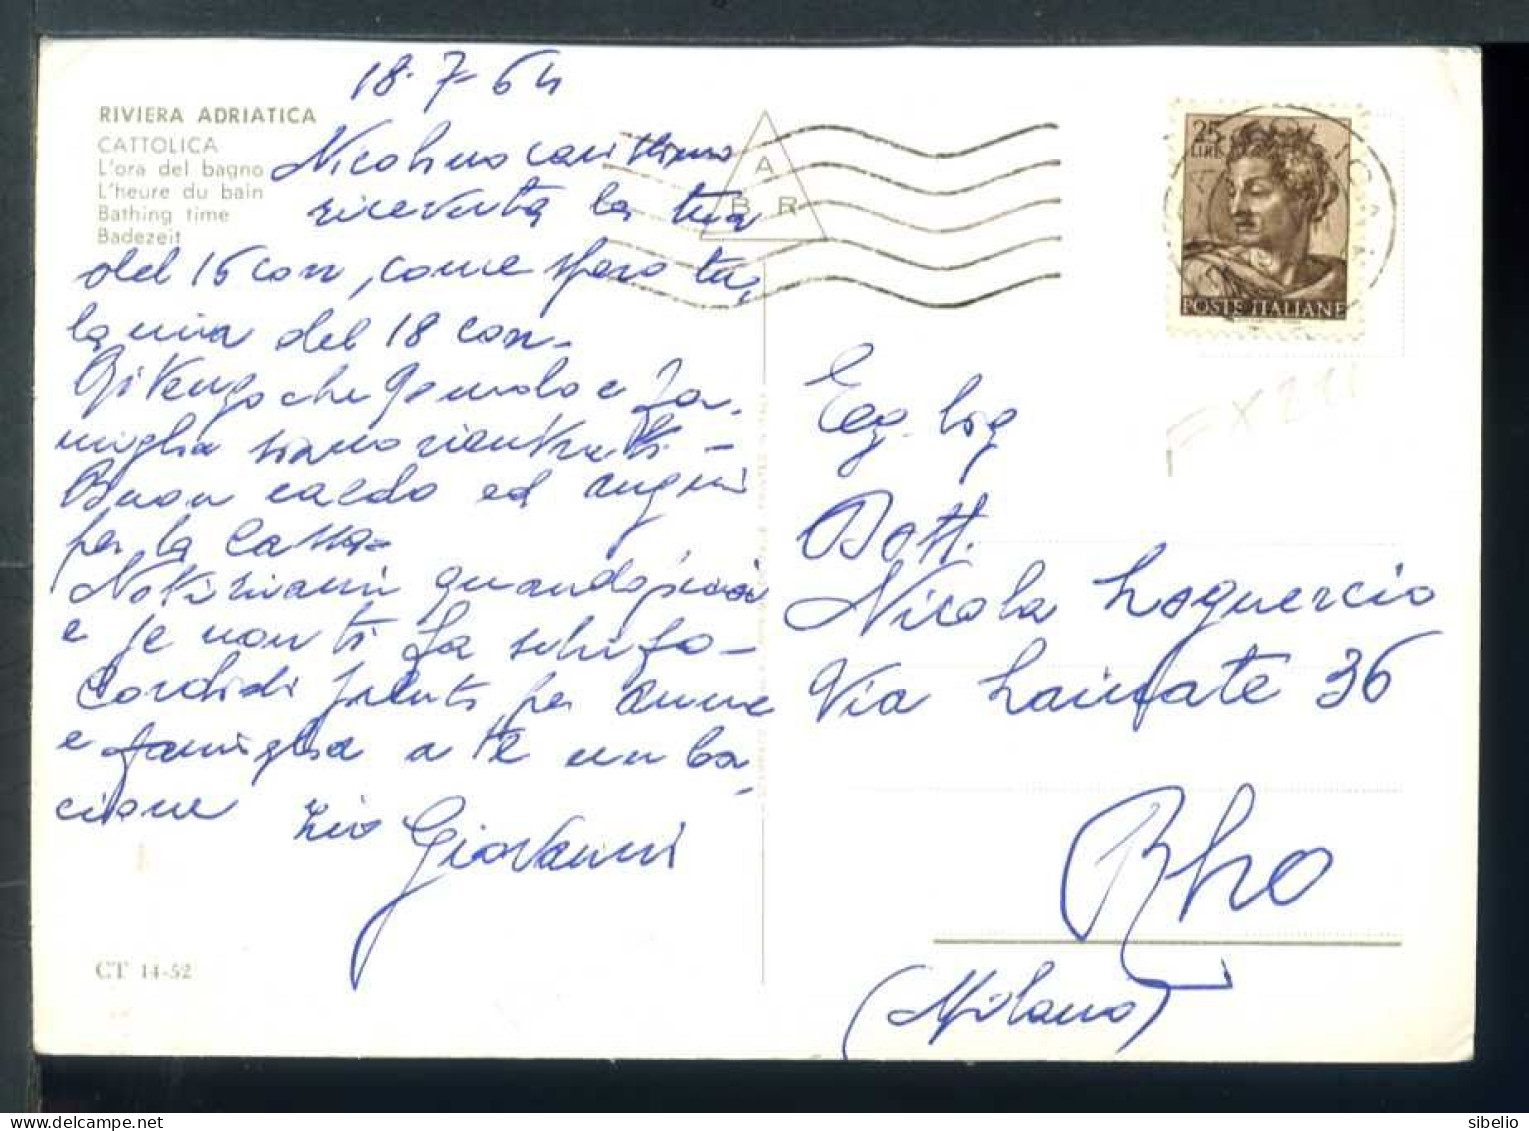 18-7-64
RIVIERA ADRIATICA
CATTOLICA
L'ora del bagno
L'heure du bain
Bathing time
Badezeit
Nicolino carissimo
ricevuta la tua
del 15 con, come spero tu,
la mia del 18 con-
famiglia siamo rientrati -
Buon caldo ed auguri
per la Cassa=
e se non ti fa schifo-
Cordidi per
e famiglia a te un ba,
cione zio
Giovanni
CT 14-52
A
B R
25
LIRE
POSTE ITALIANE
Eg. Sig
Dott.
Nicola Loguercio
Via Lainate 36
Rho
(Milano)
sibelio